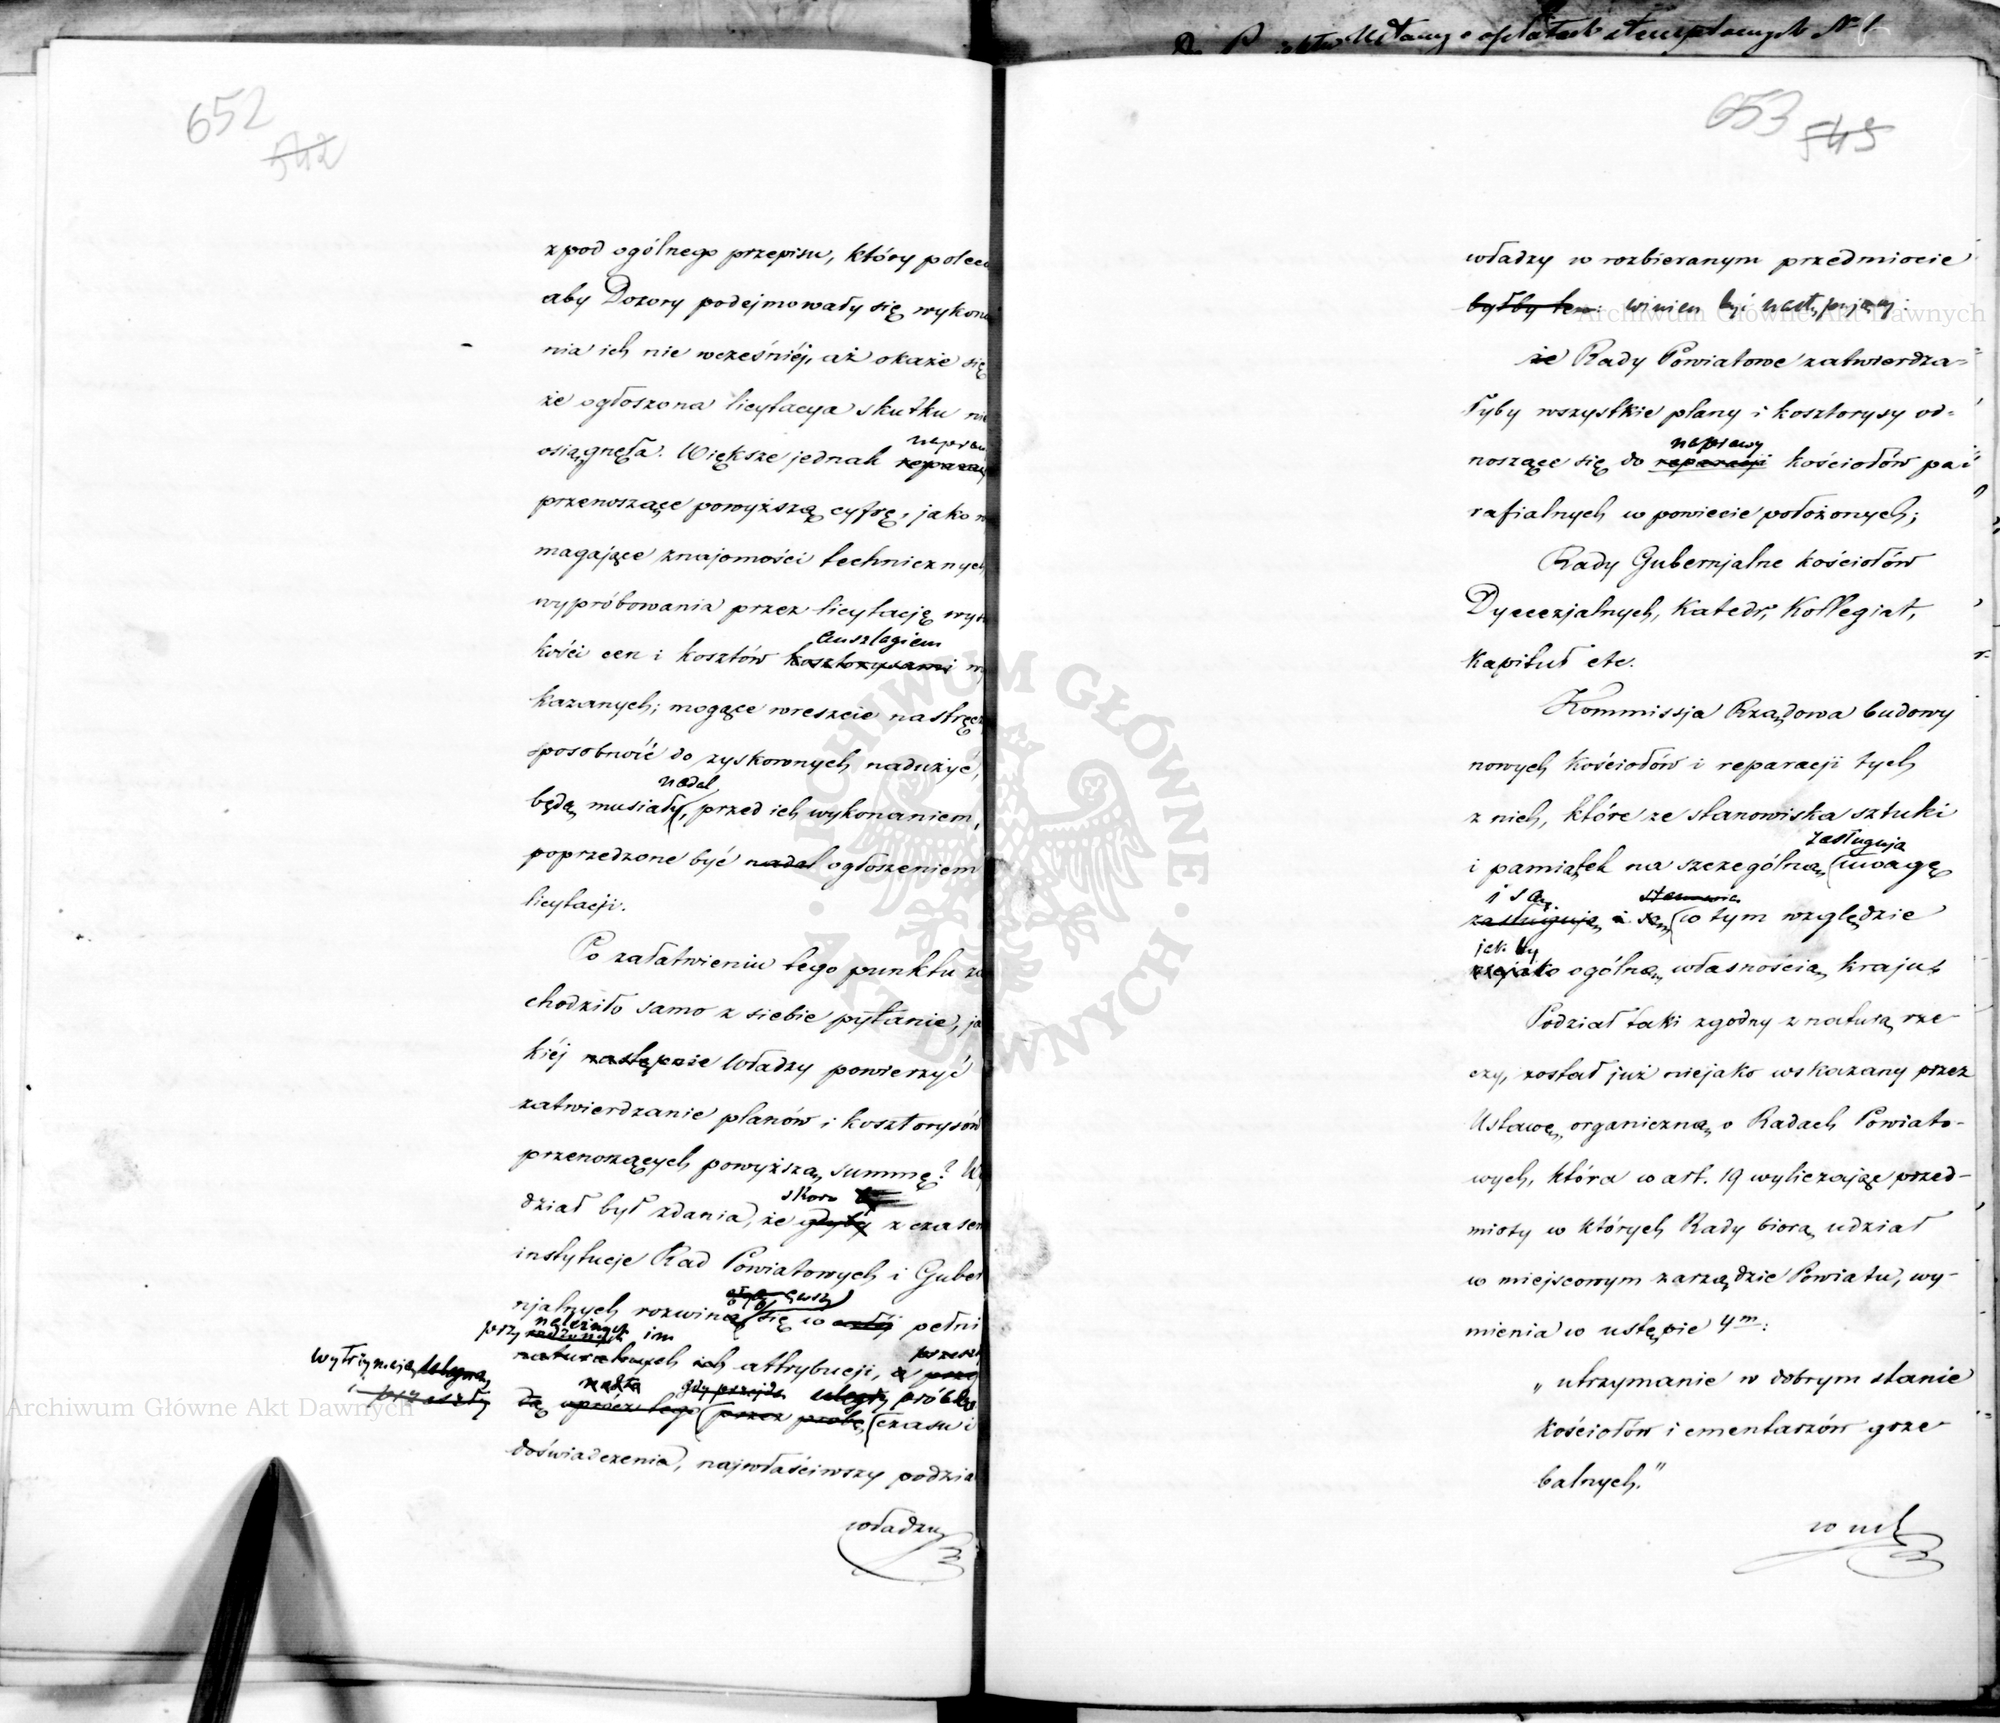 652
542
z pod ogólnego przepisu, który polec
aby Dozory podejmowały się wykona
nia ich nie wcześniéj, aż okaże się
że ogłoszona licytacya skutku nie
osiągnęła. Większe jednak
przenoszące powyższą cyfrę, jako
magające znajomości technicznych
wypróbowania przez licytację wys
Anszlagiem
kości cen i kosztów kosztorysami
kazanych; mogące wreszcie nastręcz
sposobność do zyskownych nadużyć,
nadal
będą musiały, przed ich wykonaniem,
poprzedzone być nadal ogłoszeniem
licytacji.
Po załatwieniu tego punktu za
chodziło samo z siebie pytanie, ja
kiéj następnie Władzy powierzyć
zatwierdzanie planów i kosztorysów
przenoszących powyższą summę? Wy
skoro
dział był zdania, że gdyby z czasem
instytucje Rad Powiatowych i Guber
njalnych rozwiną się w całéj pełni
przy należnych im
naturalnych ich attrybucji,
próbę
oprócz tego przez próbę czasu i
doświadczenia, najwłaściwszy podzia
władzy
653
543
władzy w rozbieranym przedmiocie
byłby ten: winien być następujący:
że Rady Powiatowe zatwierdza=
łyby wszystkie plany i kosztorysy od=
naprawy
noszące się do reparacji kościołów pa
rafialnych w powiecie położonych;
Rady Gubernjalne kościołów
Dyecezjalnych, Katedr, Kollegiat,
Kapituł etc.
Kommissja Rządowa budowy
nowych kościołów i reparacji tych
z nich, które ze stanowiska sztuki
zasługują
i pamiątek na szczególną uwagę
i są
zasługują i są w tym względzie
jak by
ogólną własnością kraju.
Podział taki zgodny z naturą rze
czy, został już niejako wskazany przez
Ustawę organiczną o Radach Powiato-
wych, która w art. 19 wyliczając przed-
mioty w których Rady biorą udział
w miejscowym zarządzie Powiatu, wy-
mienia w ustępie 4m:
„utrzymanie w dobrym stanie
kościołów i cmentarzów grze
balnych."
Archiwum Główne Akt Dawnych
Archiwum Główne Akt Dawnych
ARCHIWUM GŁÓWNE · AKT DAWNYCH ·